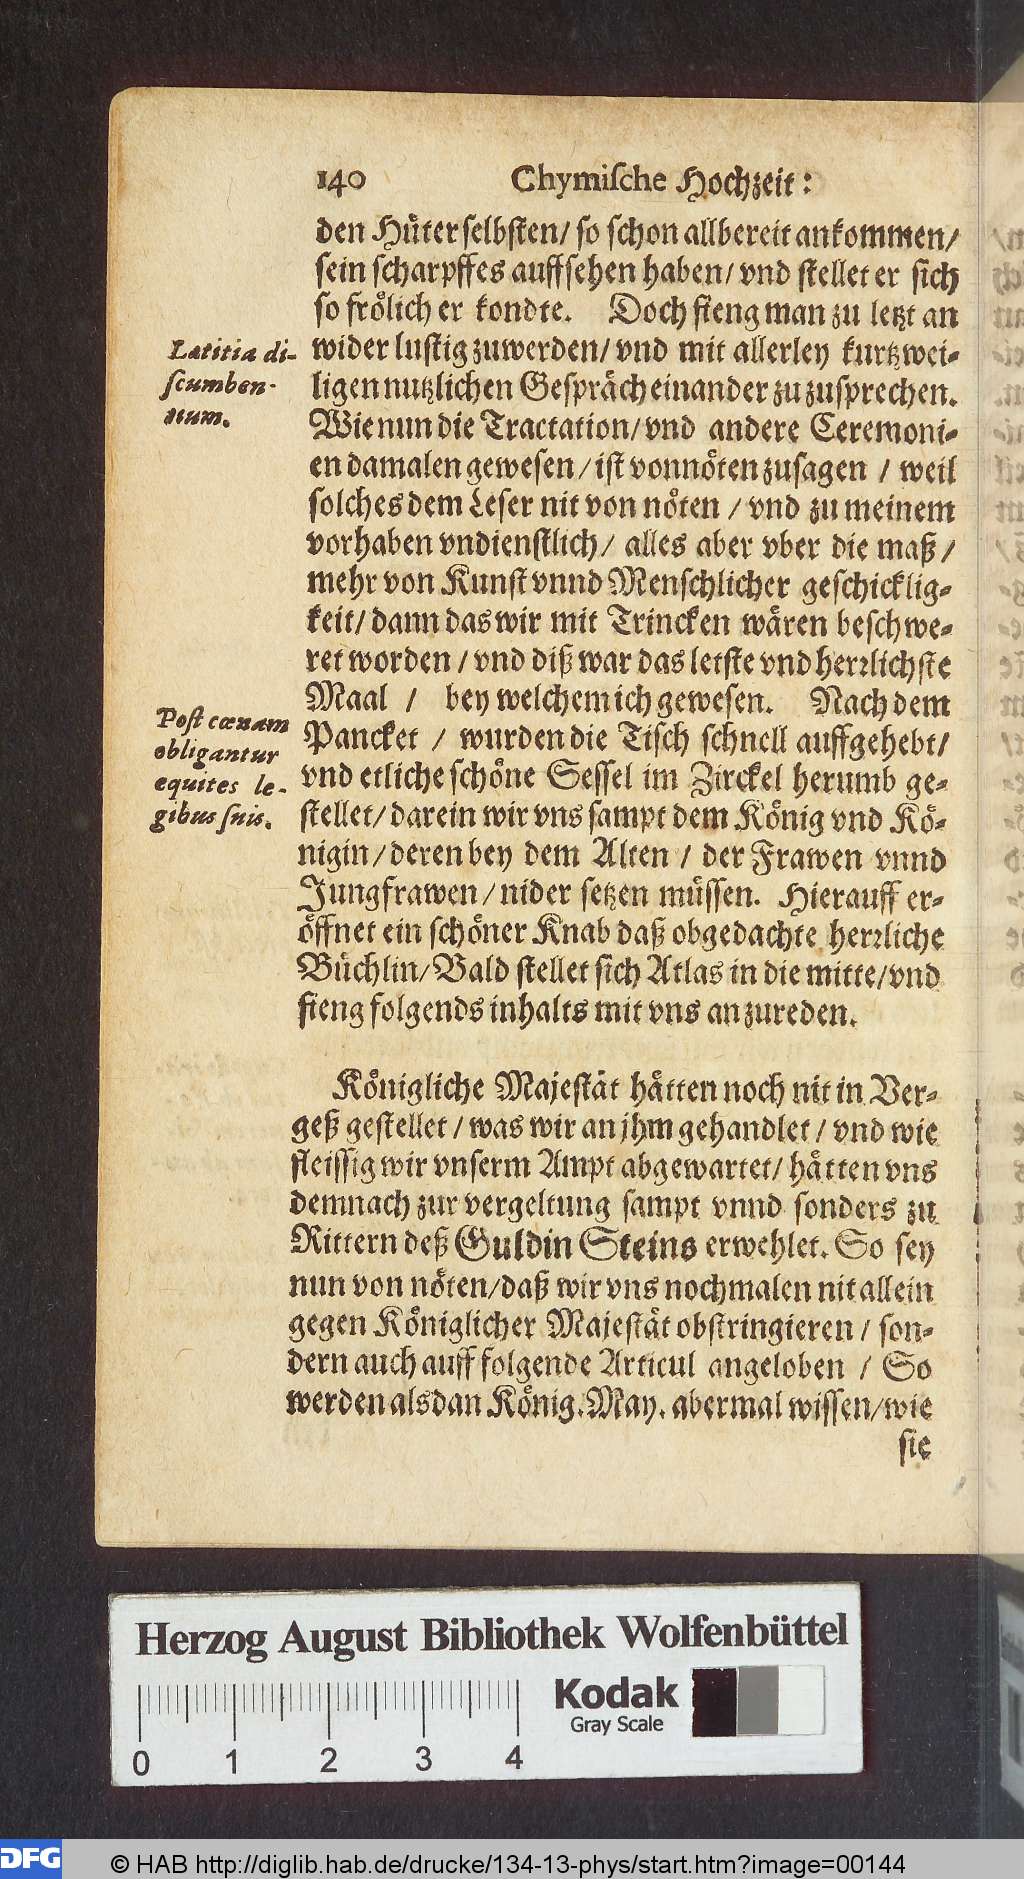 140 Chymische Hochzeit:
den Hüter selbsten/ so schon allbereit ankommen/
sein scharpffes auffsehen haben/ vnd stellet er sich
so frölich er kondte. Doch fieng man zu letzt an
wider lustig zuwerden/ vnd mit allerley kurtzwei-
ligen nutzlichen Gespräch einander zu zusprechen.
Wie nun die Tractation/ vnd andere Ceremoni-
en damalen gewesen/ ist vonnöten zusagen / weil
solches dem Leser nit von nöten / vnd zu meinem
vorhaben vndienstlich/ alles aber vber die maß /
mehr von Kunst vnnd Menschlicher geschicklig-
keit/ dann das wir mit Trincken wären beschwe-
ret worden / vnd diß war das letste vnd herrlichste
Maal / bey welchem ich gewesen. Nach dem
Pancket / wurden die Tisch schnell auffgehebt/
vnd etliche schöne Sessel im Zirckel herumb ge-
stellet/ darein wir vns sampt dem König vnd Kö-
nigin/ deren bey dem Alten / der Frawen vnnd
Jungfrawen/ nider setzen müssen. Hierauff er-
öffnet ein schöner Knab daß obgedachte herrliche
Büchlin/ Bald stellet sich Atlas in die mitte/ vnd
fieng folgends inhalts mit vns an zureden.
Königliche Majestät hätten noch nit in Ver-
geß gestellet / was wir an jhm gehandlet / vnd wie
fleissig wir vnserm Ampt abgewartet/ hätten vns
demnach zur vergeltung sampt vnnd sonders zu
Rittern deß Guldin Steins erwehlet. So sey
nun von nöten/ daß wir vns nochmalen nit allein
gegen Königlicher Majestät obstringieren / son-
dern auch auff folgende Articul angeloben / So
werden alsdan König. May. abermal wissen/ wie
sie
Lætitia di-
scumben-
tium.
Post cœnam
obligantur
equites le-
gibus suis.
Herzog August Bibliothek Wolfenbüttel
Kodak
Gray Scale
0 1 2 3 4
DFG © HAB http://diglib.hab.de/drucke/134-13-phys/start.htm?image=00144